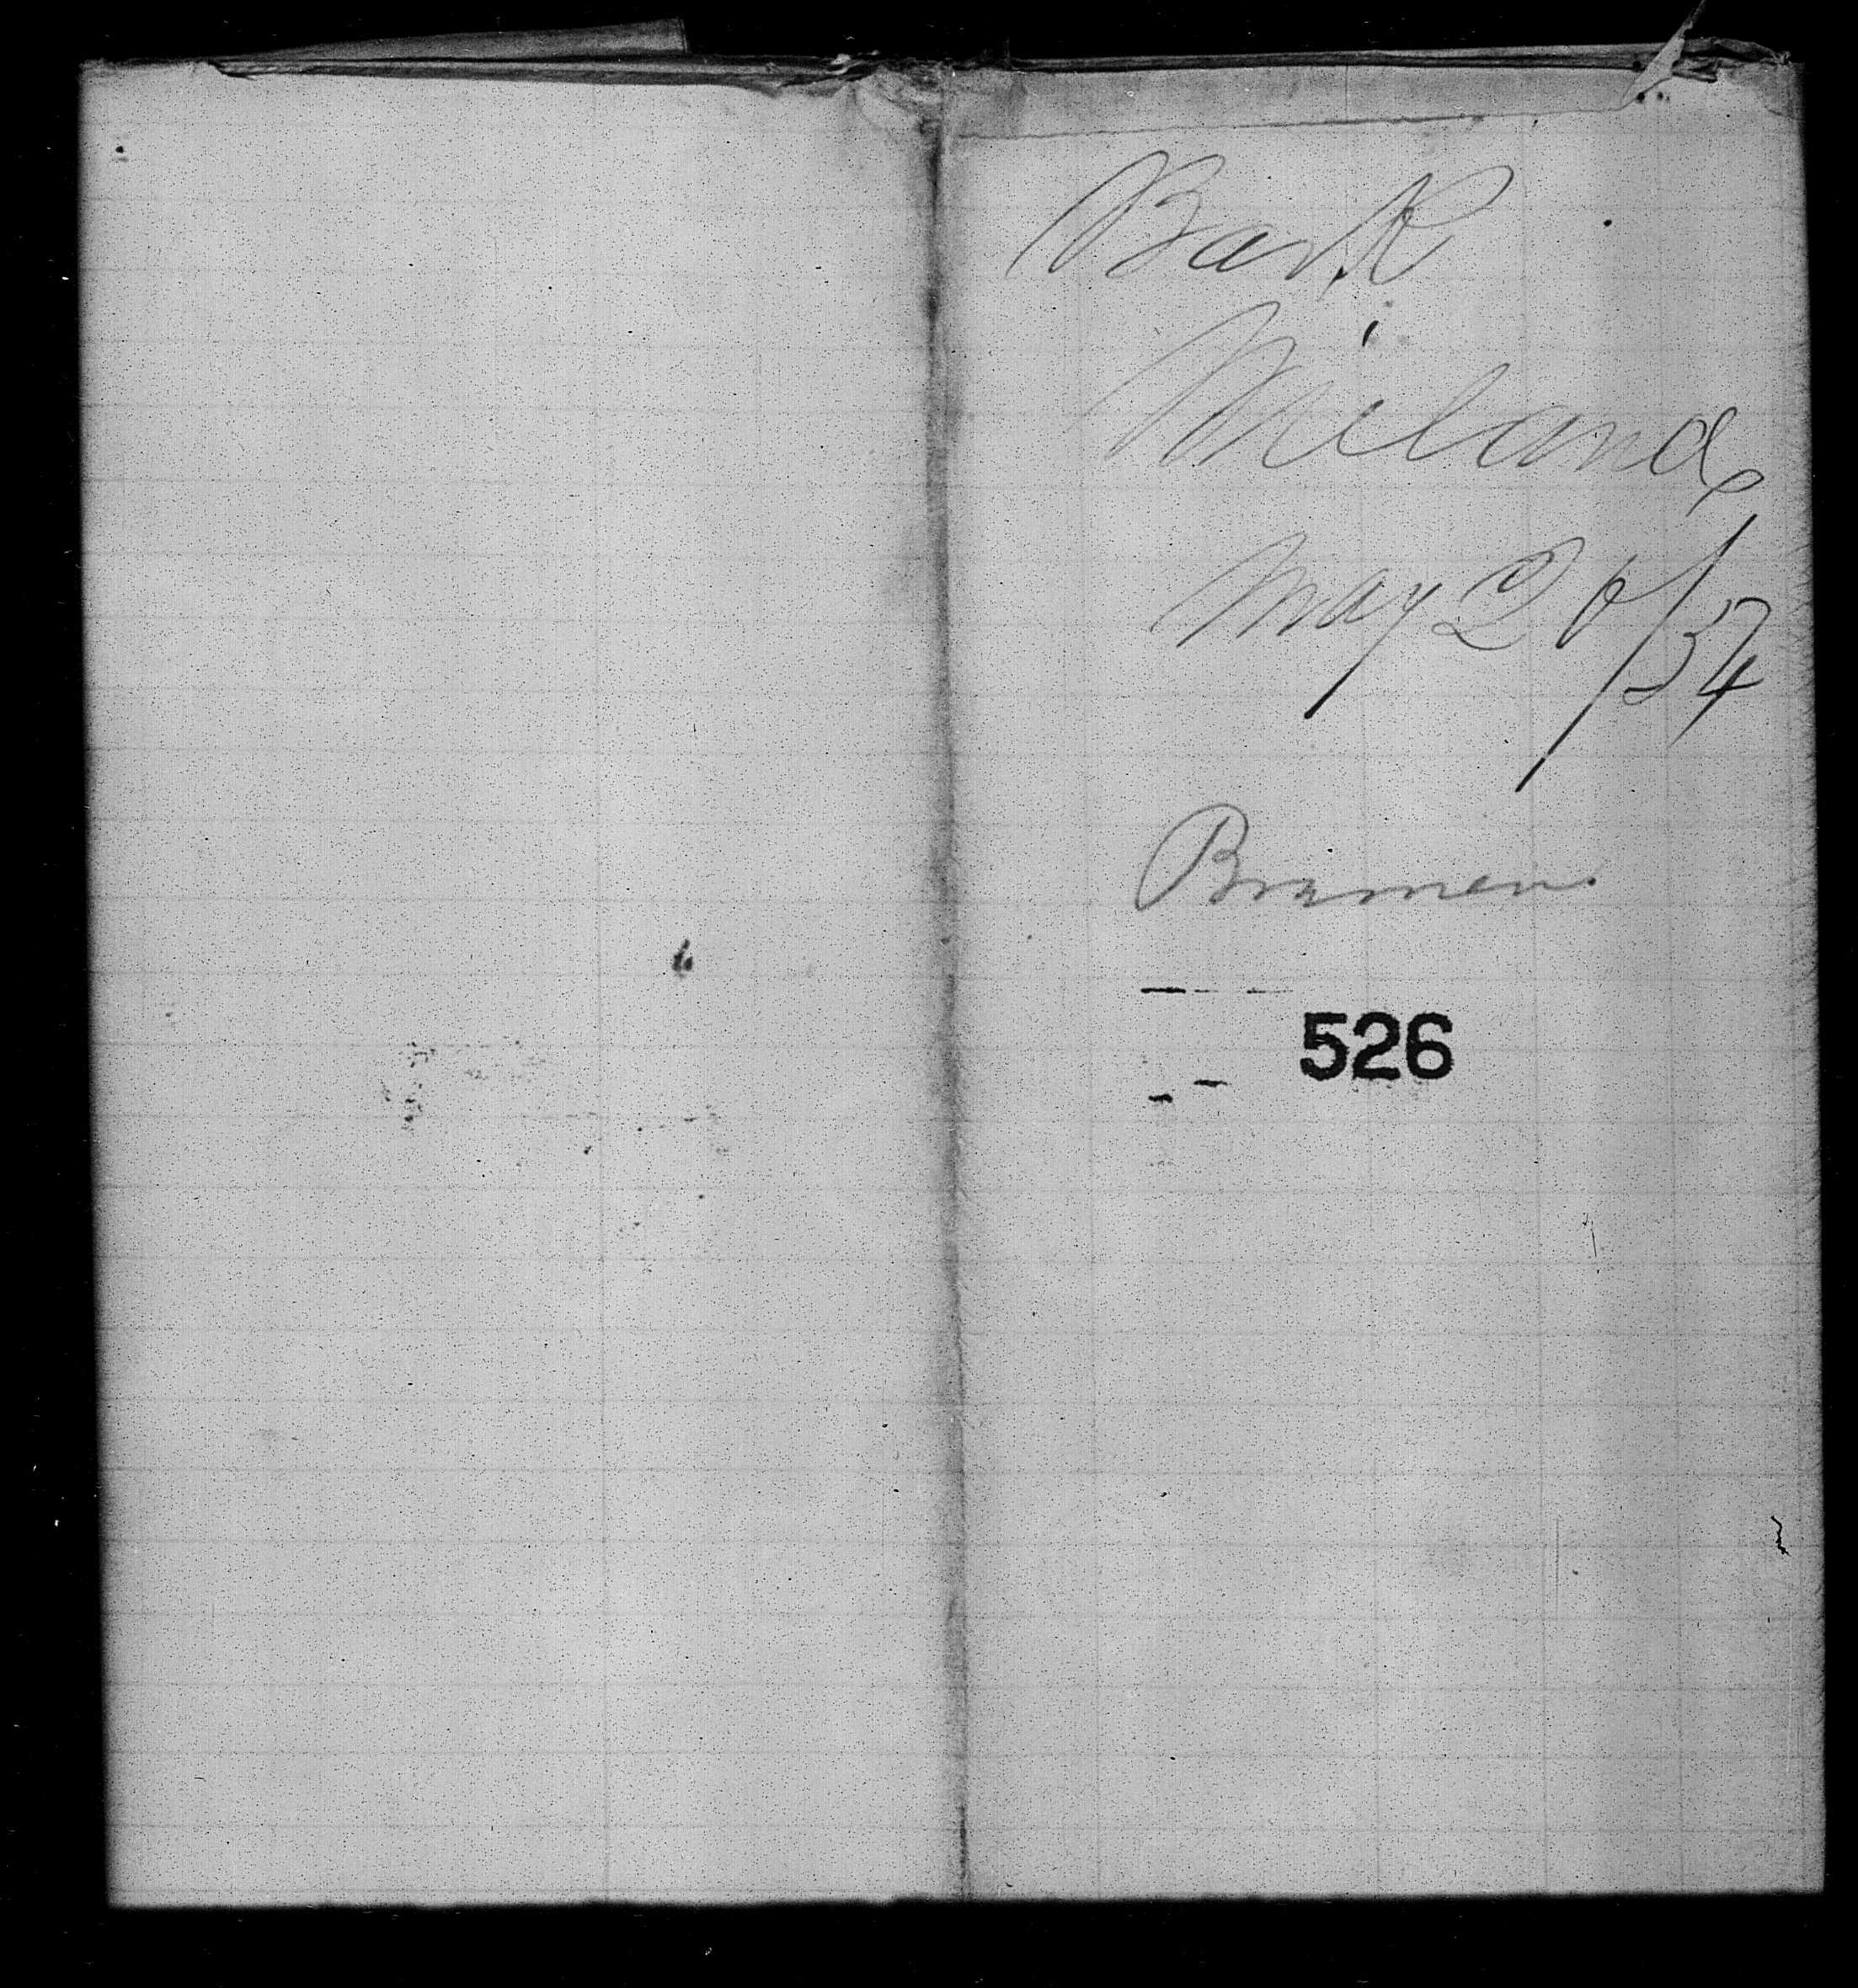 Bark
Miland
May 20/54
Bremen.
526